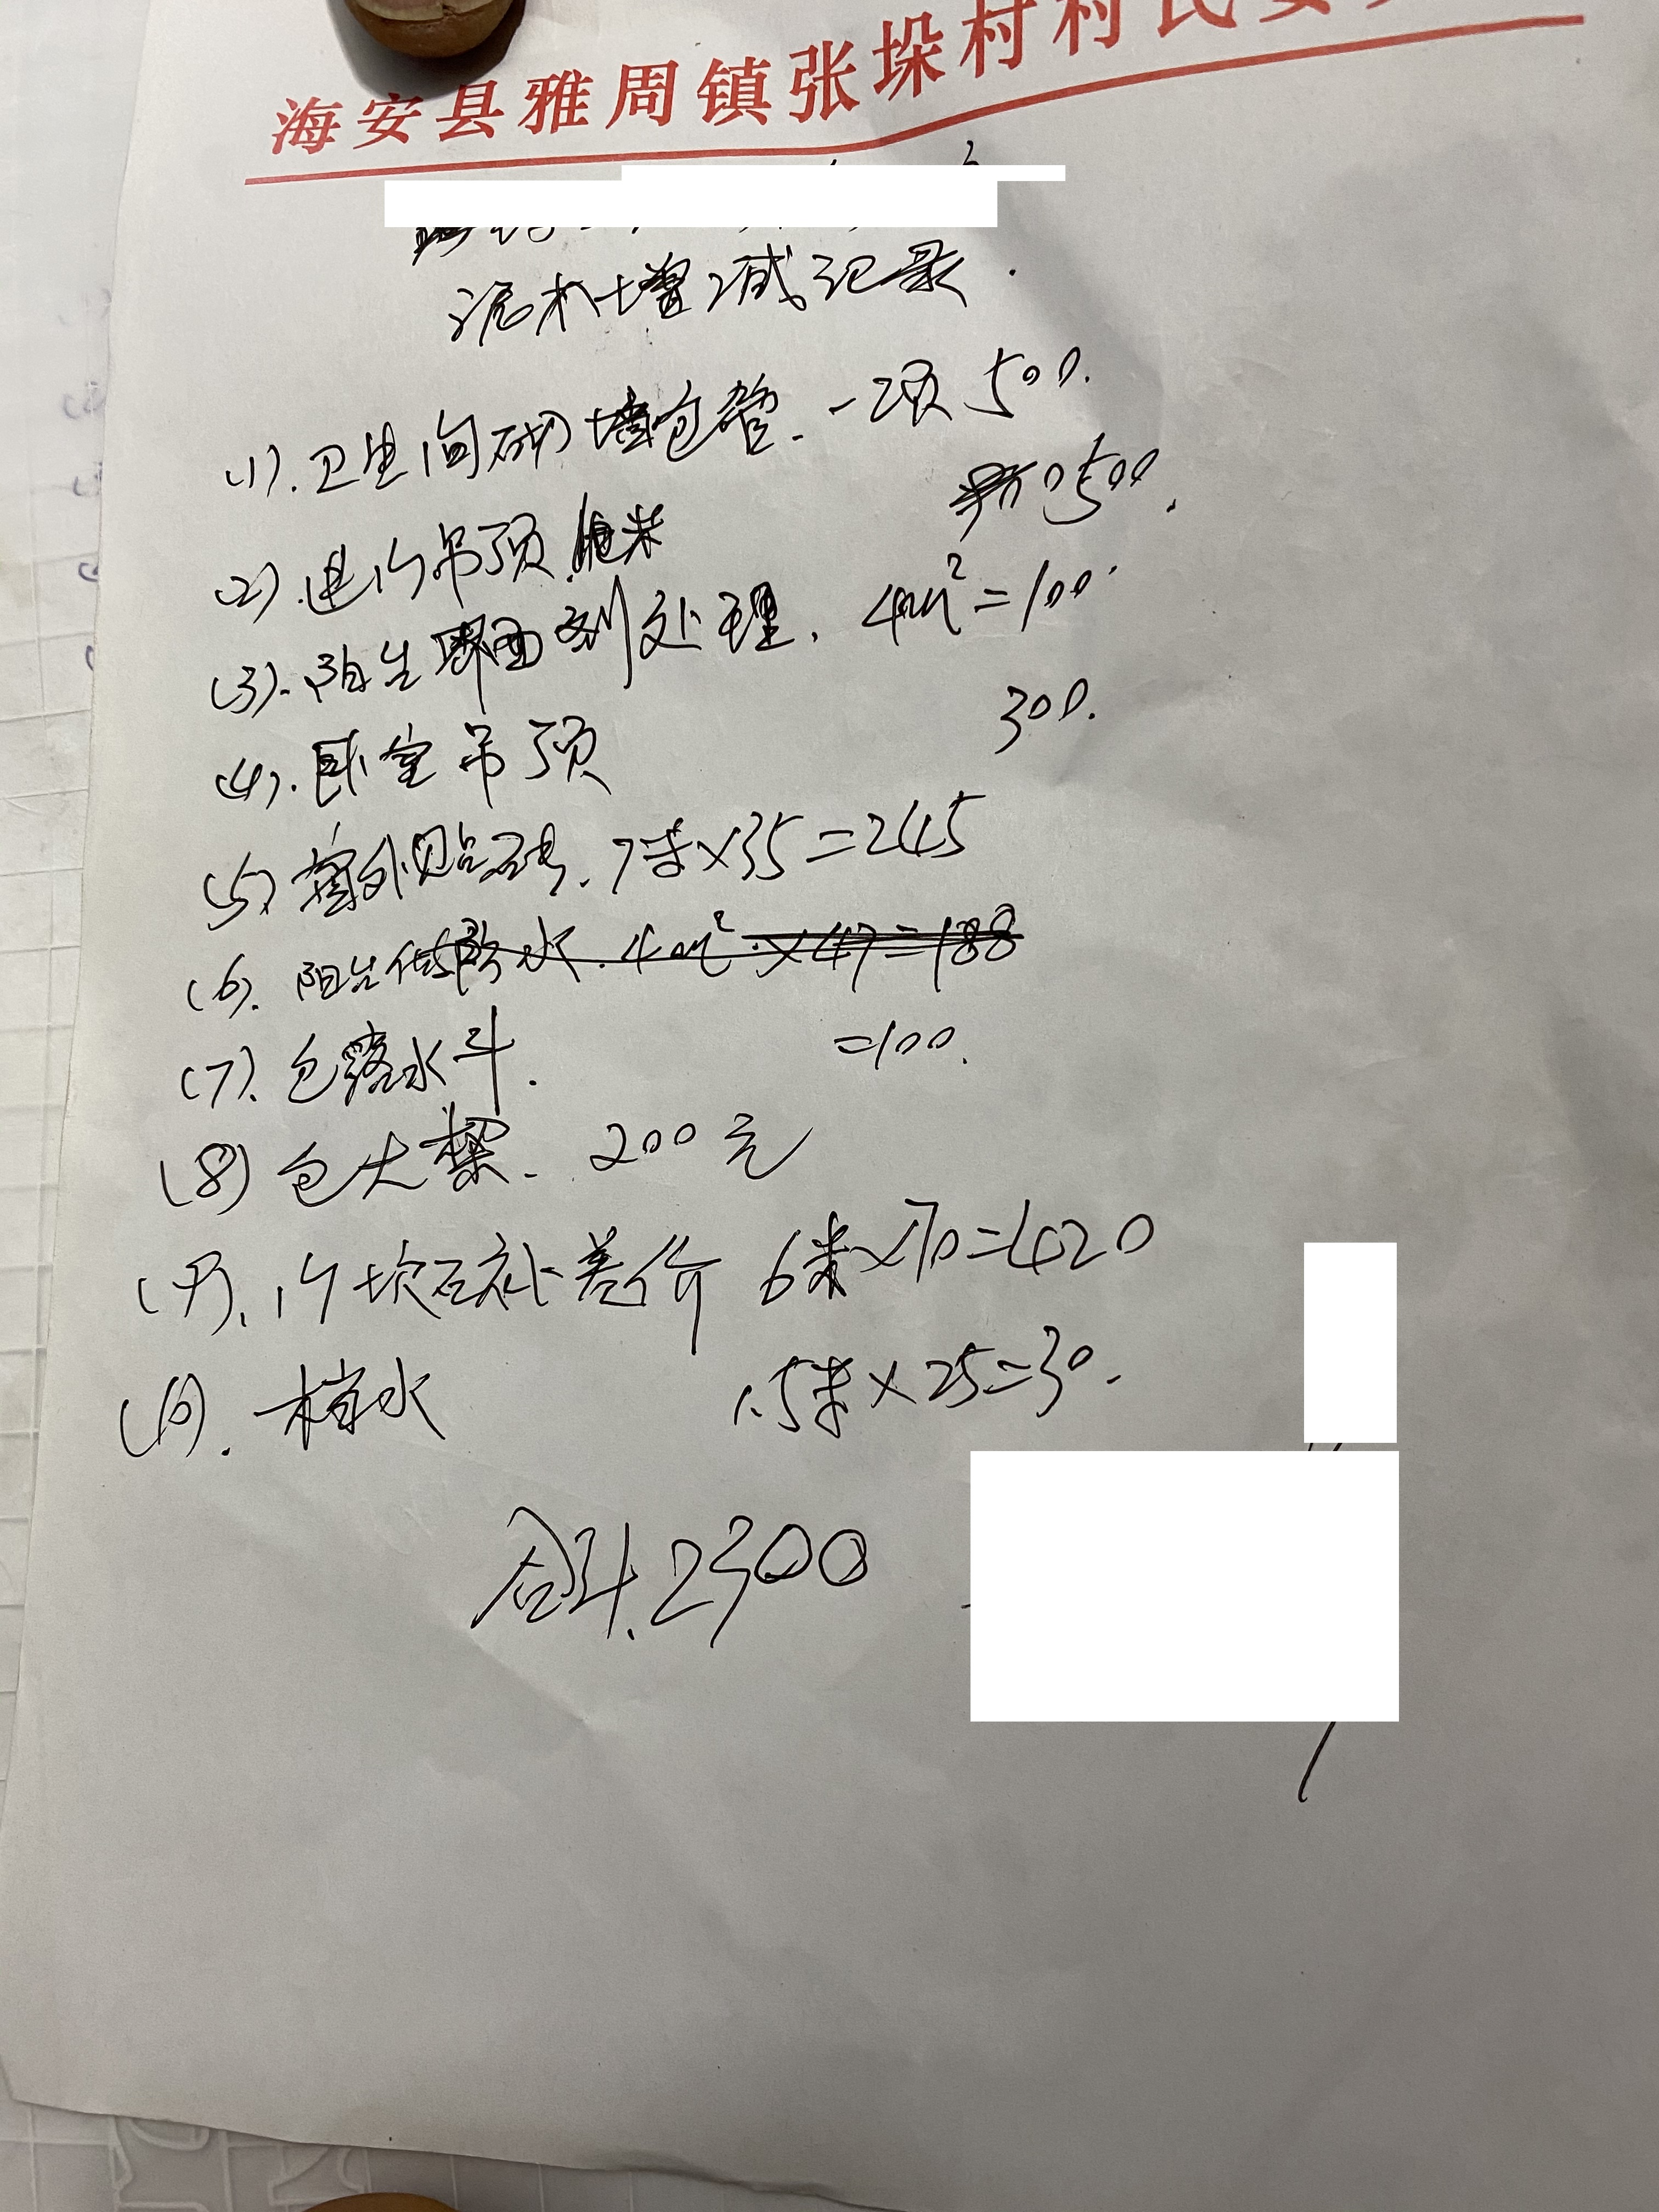 海安县雅周镇张垛村村民委
泥木增减记录.
(1).卫生间砌墙包管.一项 500.
(2).进门吊顶 500.
(3).阳台界面剂处理. 4m²=100.
(4).卧室吊顶 300.
(5)窗外贴砖.7米×35=245
(6).阳台做防水.4m²×47=188
(7).包落水斗. =100.
(8)包大梁. 200元
(9).门坎石补差价 6米×70=420
(10).档水 1.5米×25=30.
合计.2300